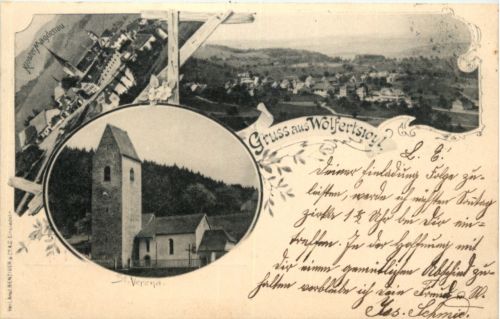 Kloster Magdenau
Gruss aus Wolfertswyl.
St. Verena.
L. E.
Deiner Einladung Folge zu-
leisten, werde ich nächsten Sonntag
zirka 1 8 Uhr bei dir ein-
treffen. In der Hoffnung mit
dir einen gemütlichen Abschied zu-
halten verbleibe ich dein Freund W.
Jos. Schmid.